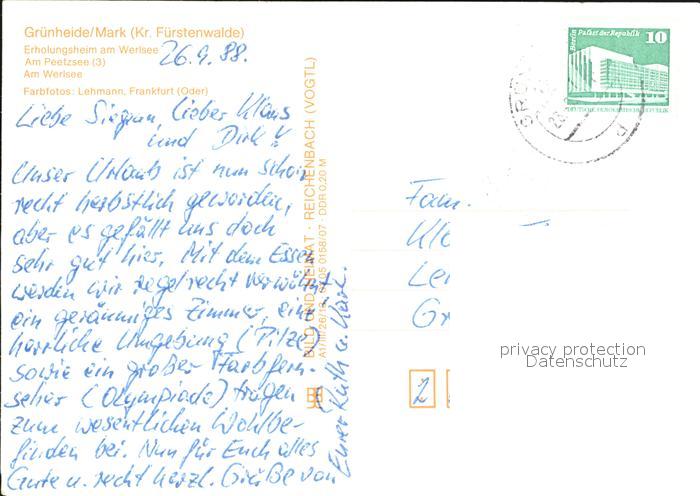 Grünheide/Mark (Kr. Fürstenwalde)
Erholungsheim am Werlsee
Am Peetzsee (3)
Am Werlsee
Farbfotos: Lehmann, Frankfurt (Oder)
26.9.88.
Liebe Siegrun, lieber Klaus
und Dirk!
Unser Urlaub ist nun schon
recht herbstlich geworden,
aber es gefällt uns doch
sehr gut hier. Mit dem Essen
werden wir regelrecht verwöhnt,
ein geräumiges Zimmer, eine
herrliche Umgebung (Pilze)
sowie ein großer Farbfern-
seher (Olympiade) tragen
zum wesentlichen Wohlbe-
finden bei. Nun für Euch alles
Gute u. recht herzl. Grüße von
Eurer Ruth u. Karl.
BILD UND HEIMAT · REICHENBACH (VOGTL)
A1/III/26/13 0158/07 · DDR 0,20 M
Berlin Palast der Republik
10
DEUTSCHE DEMOKRATISCHE REPUBLIK
Fam.
Kl
Le
Gr
2
privacy protection
Datenschutz